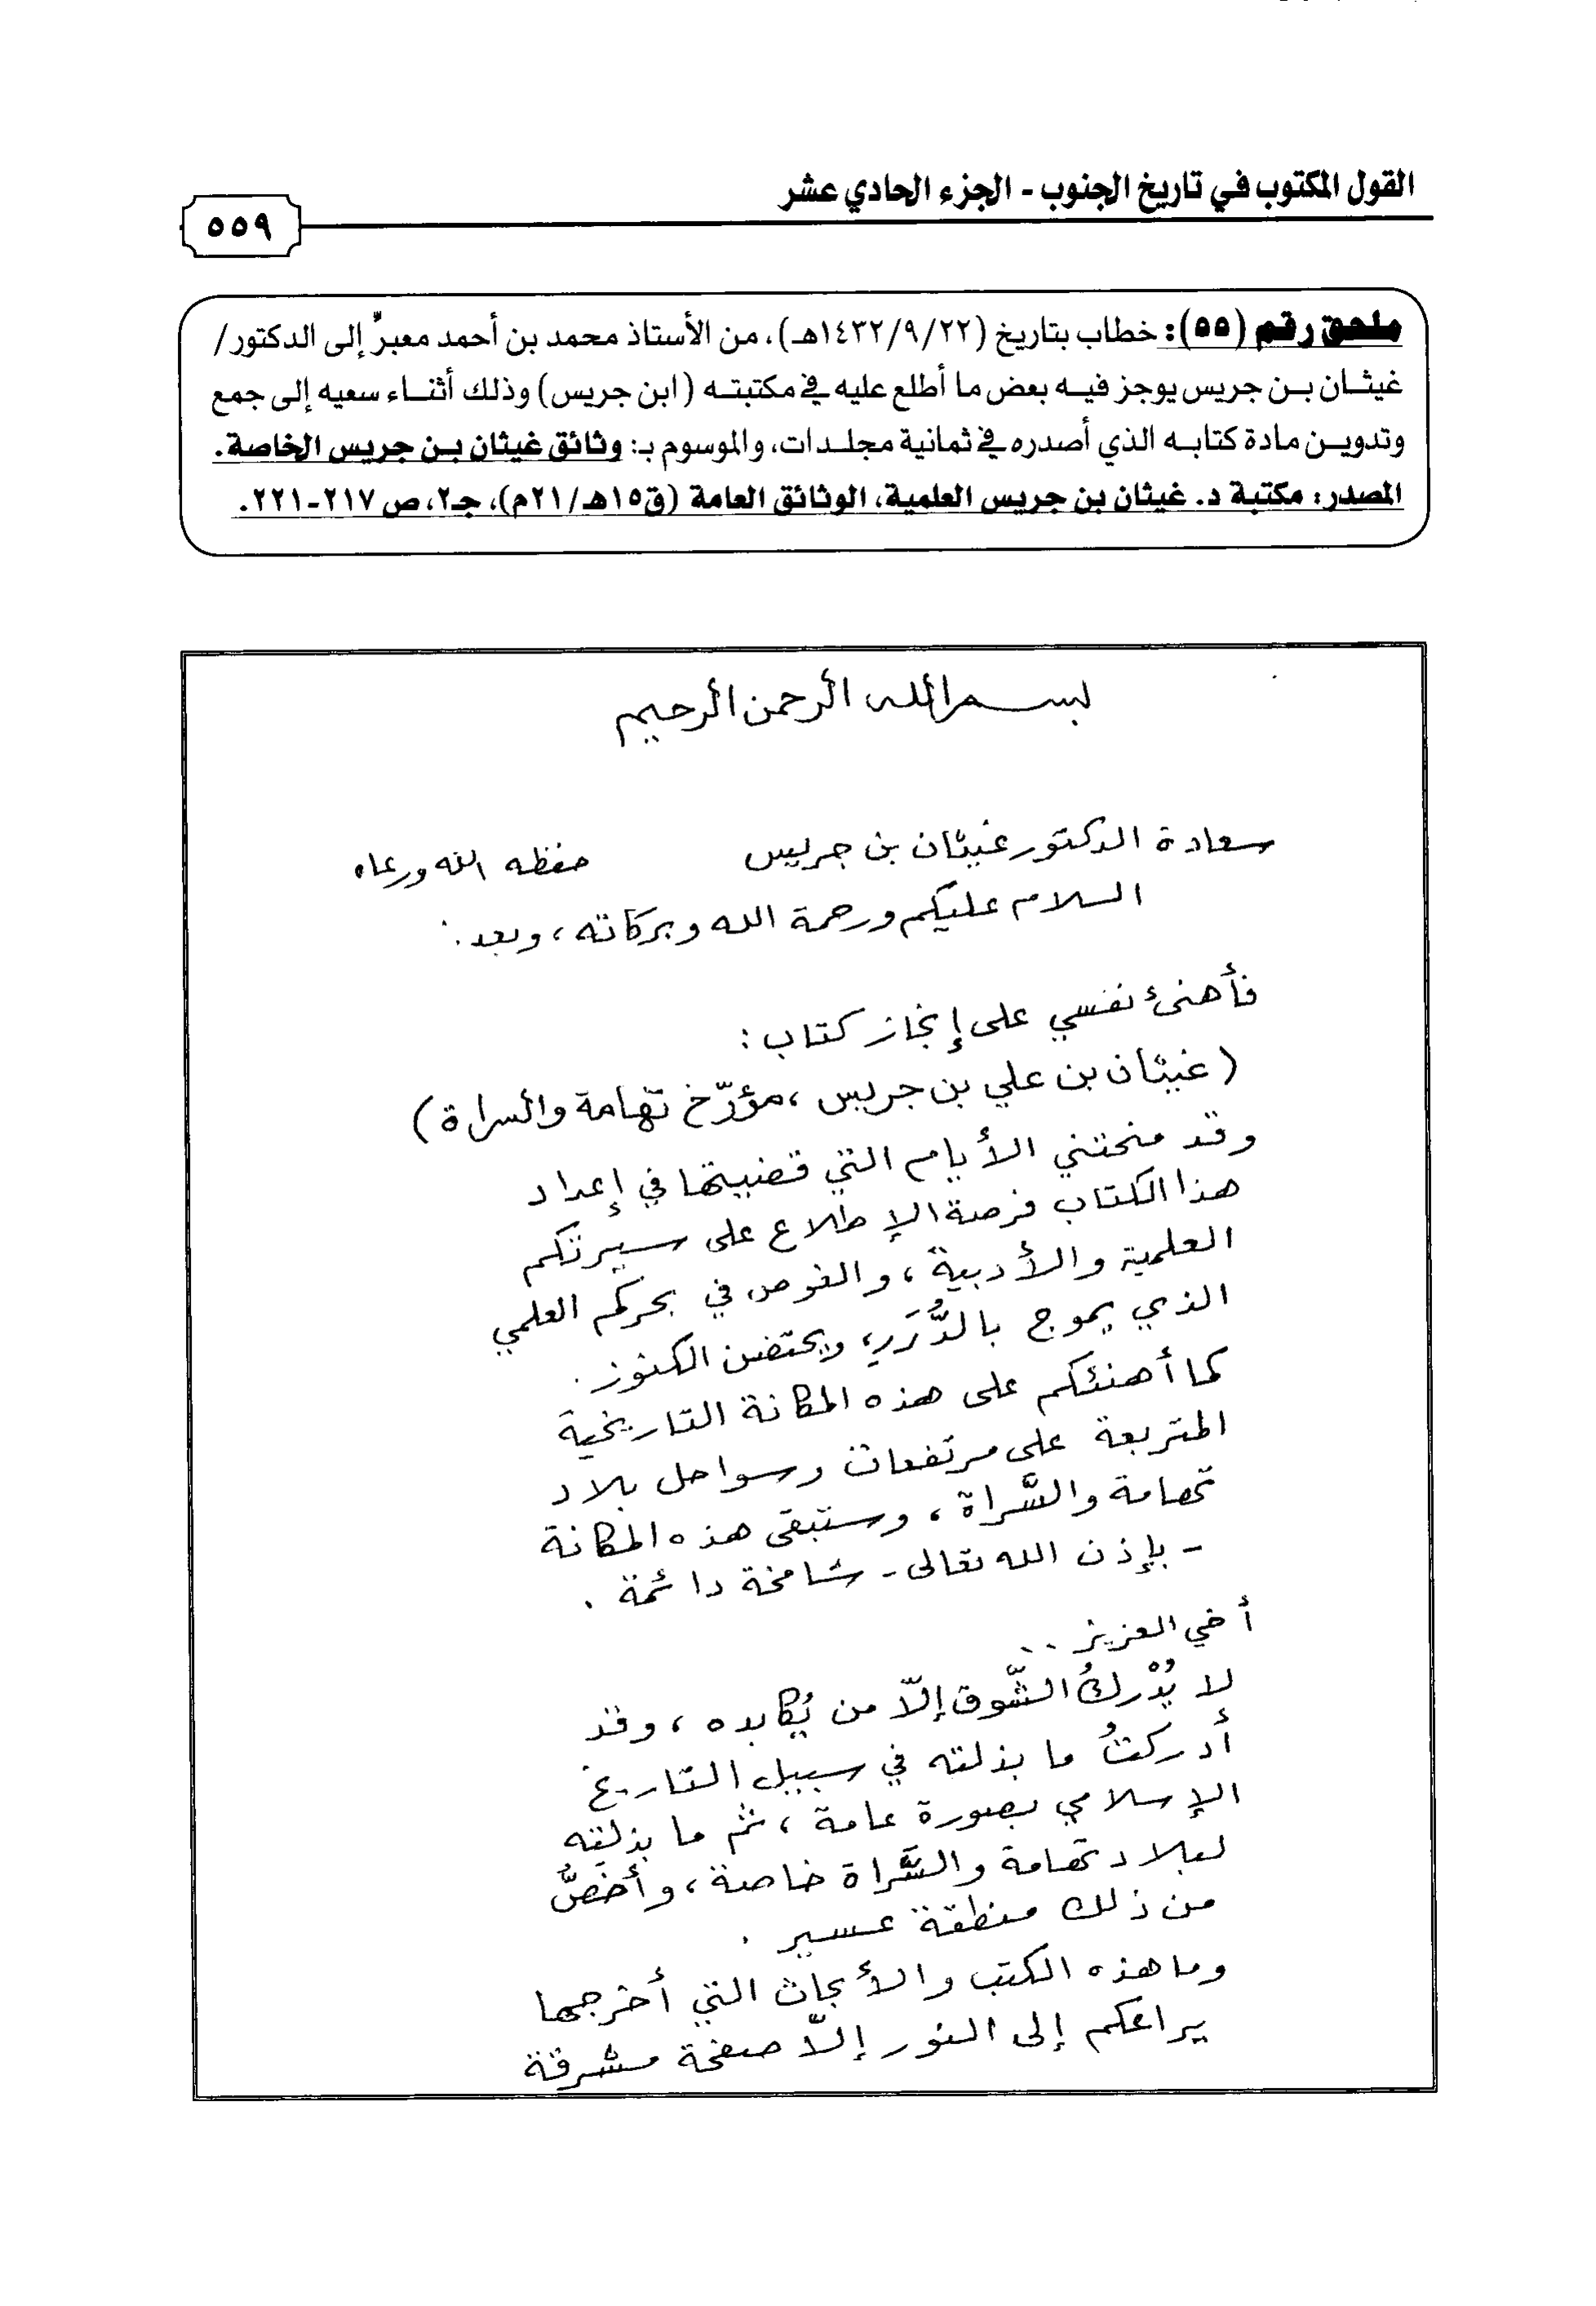 القول المكتوب في تاريخ الجنوب - الجزء الحادي عشر
٥٥٩
ملحق رقم (٥٥): خطاب بتاريخ (١٤٣٢/٩/٢٢هـ)، من الأستاذ محمد بن أحمد معبرٌ إلى الدكتور/
غيثان بن جريس يوجز فيه بعض ما أطلع عليه في مكتبته (ابن جريس) وذلك أثناء سعيه إلى جمع
وتدوين مادة كتابه الذي أصدره في ثمانية مجلدات، والموسوم بـ: وثائق غيثان بن جريس الخاصة.
المصدر: مكتبة د. غيثان بن جريس العلمية، الوثائق العامة (ق١٥هـ/٢١م)، جـ٢، ص ٢١٧-٢٢١.
بسم الله الرحمن الرحيم
سعادة الدكتور غيثان بن جريس حفظه الله ورعاه
السلام عليكم ورحمة الله وبركاته، وبعد:
فأهنئ نفسي على إنجاز كتاب:
(غيثان بن علي بن جريس، مؤرّخ تهامة والسراة)
وقد منحتني الأيام التي قضيتها في إعداد
هذا الكتاب فرصة الإطلاع على سيرتكم
العلمية والأدبية، والغوص في بحركم العلمي
الذي يموج بالدُّرَرِ، ويحتضن الكنوز.
كما أهنئكم على هذه المكانة التاريخية
المتربعة على مرتفعات وسواحل بلاد
تهامة والسَّراة، وستبقى هذه المكانة
- بإذن الله تعالى - شامخة دائمة.
أخي العزيز..
لا يُدْركُ الشَّوق إلاّ من يُكابده، وقد
أدركتُ ما بذلته في سبيل التاريخ
الإسلامي بصورة عامة، ثم ما بذلته
لبلاد تهامة والسَّراة خاصة، وأخصُّ
من ذلك منطقة عسير.
وما هذه الكتب والأبحاث التي أخرجها
يراعكم إلى النور إلاّ صفحة مشرقة